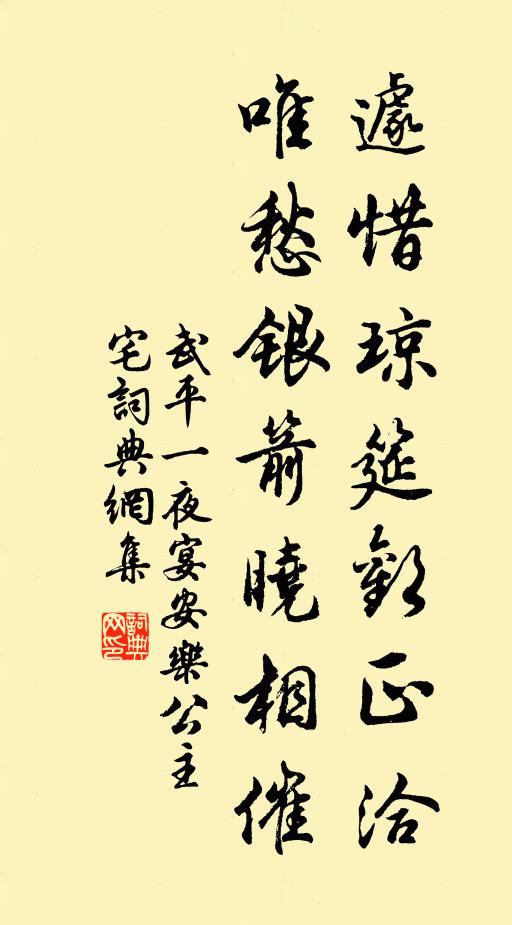 遽惜琼筵歡正洽
唯愁銀箭曉相催
武平一夜宴安樂公主
宅詞典網集
詞典网印